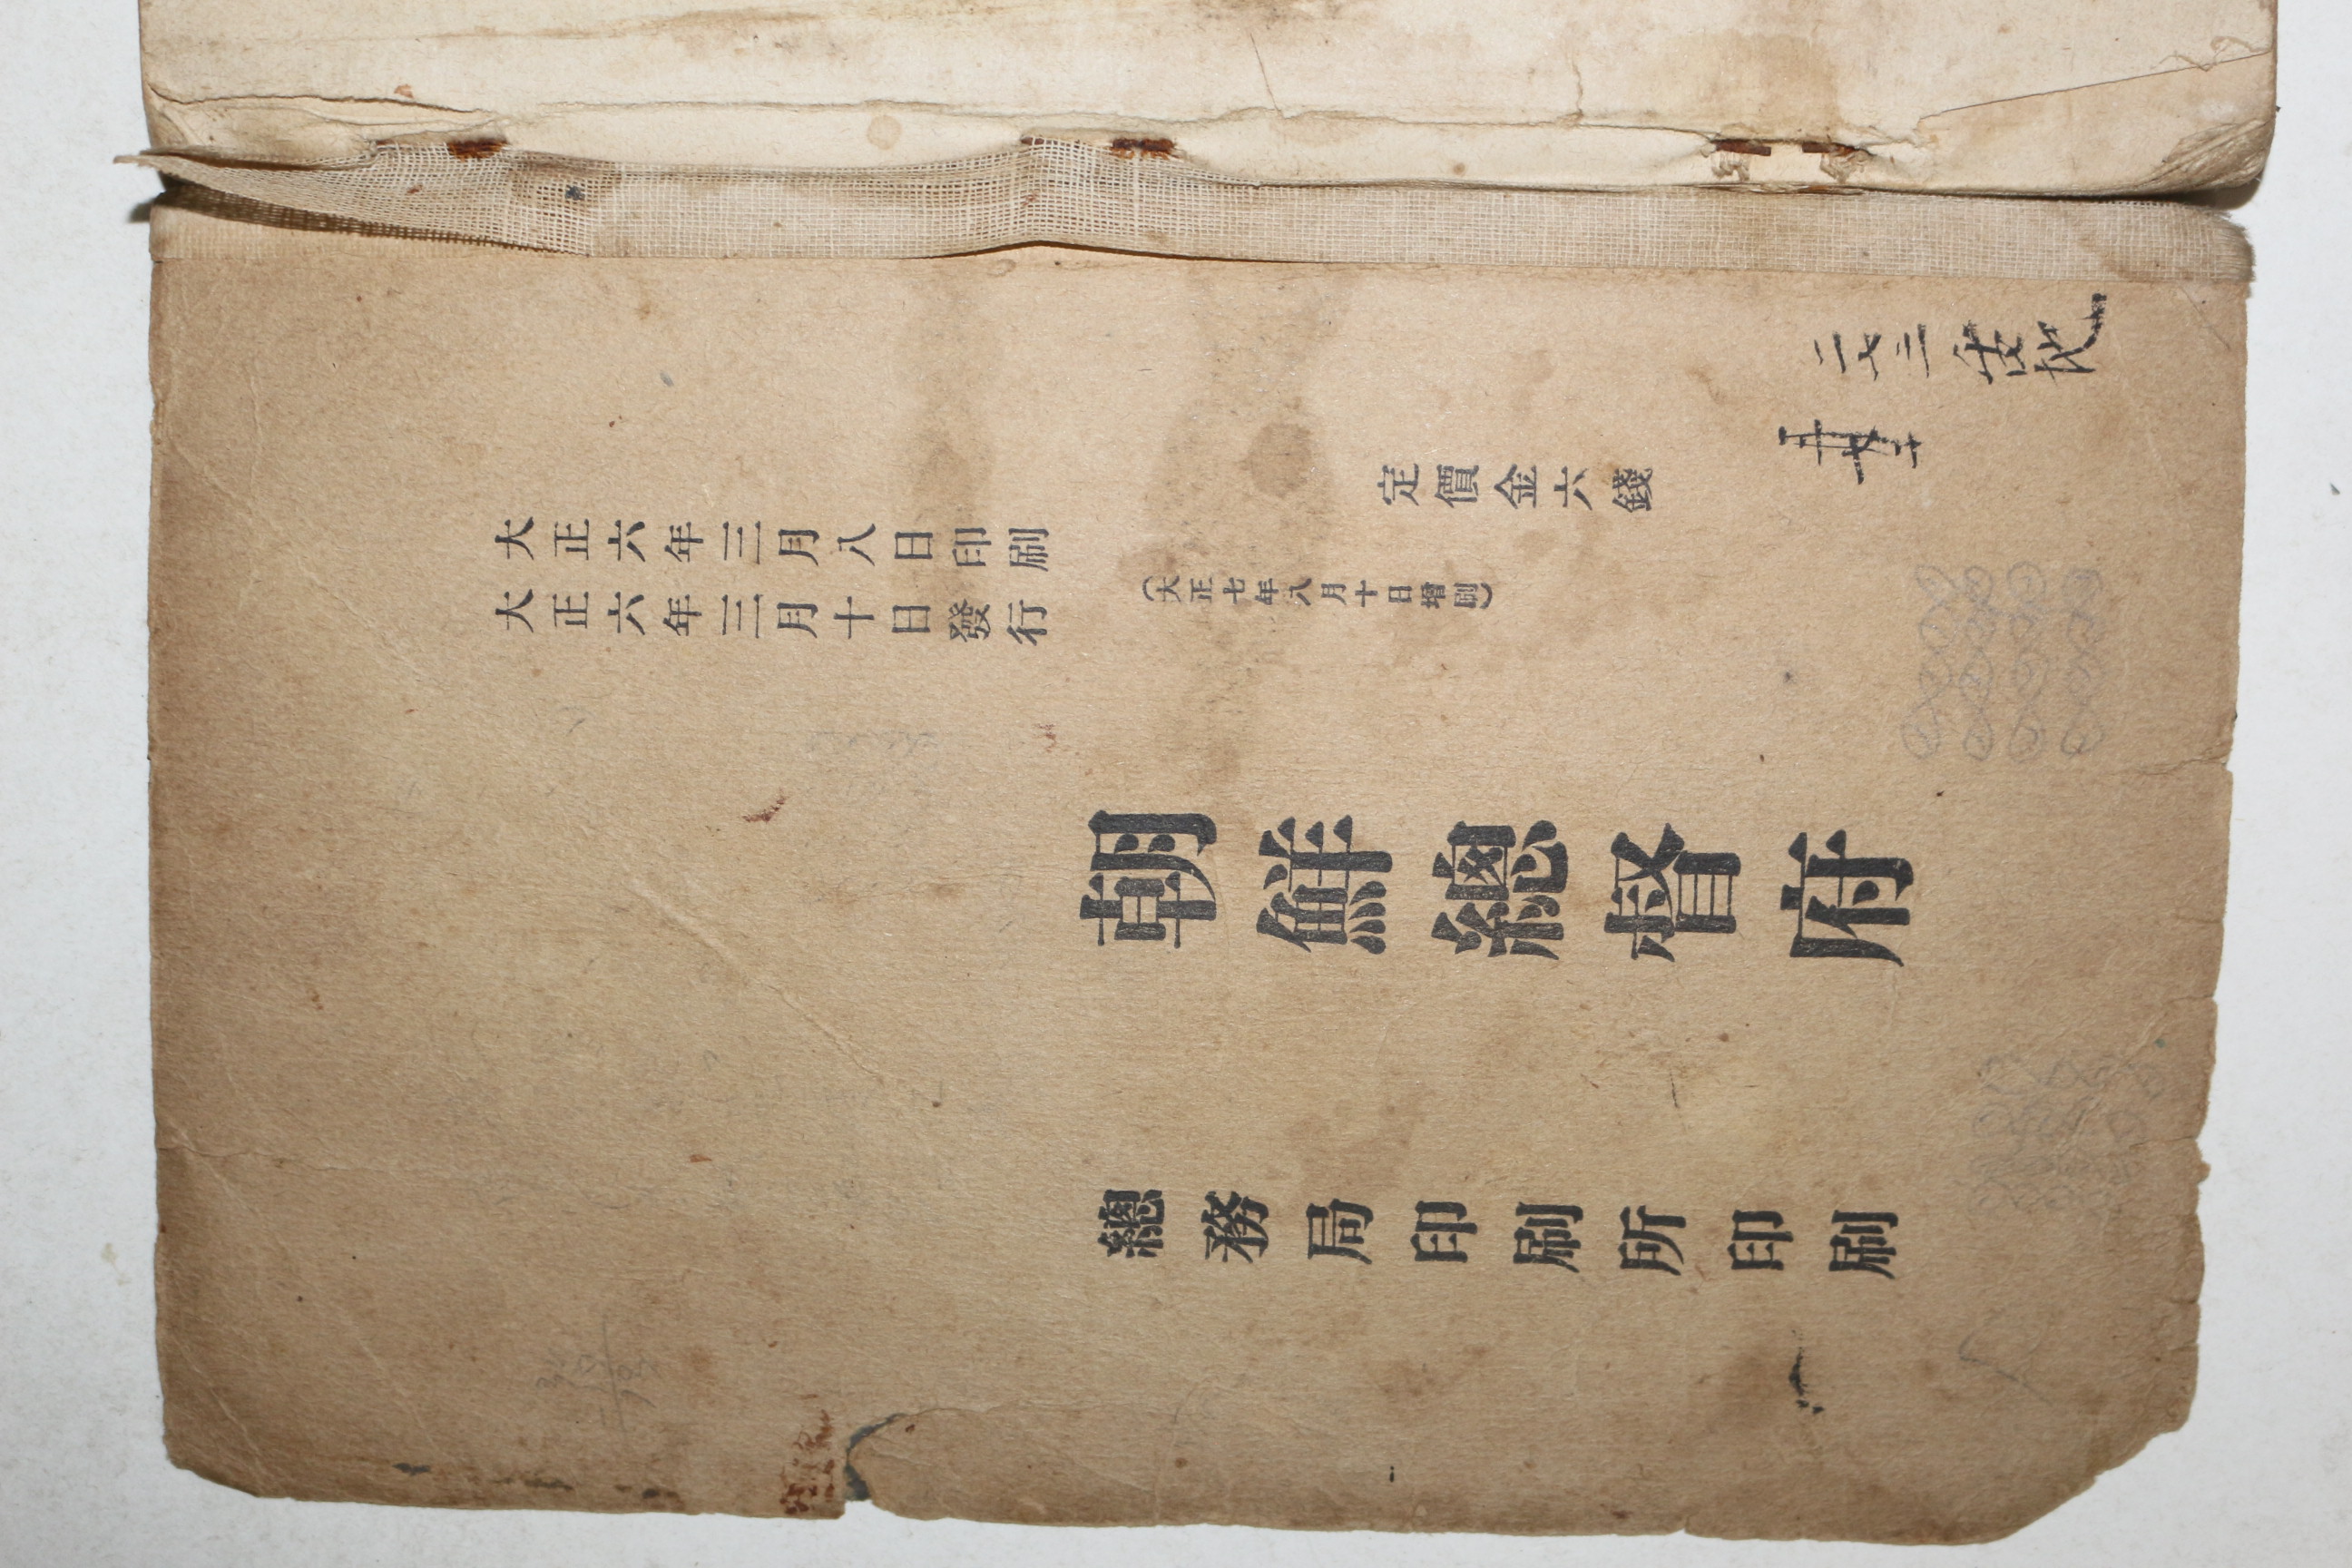 定價金六錢
大正六年三月八日印刷
大正六年三月十日發行
(大正七年八月十日增刷)
朝鮮總督府
總務局印刷所印刷